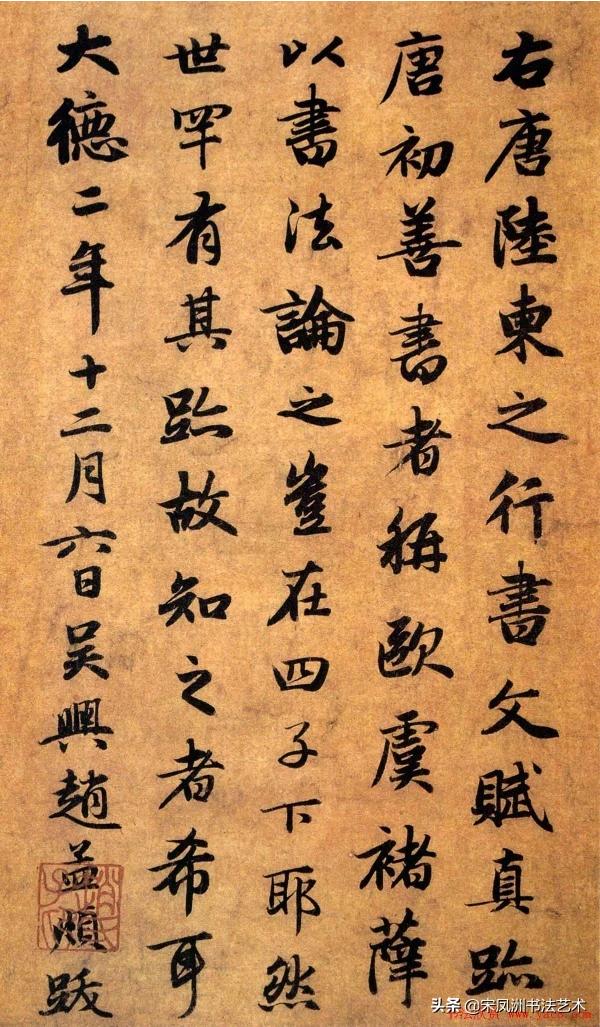 右唐陸柬之行書文賦真跡
唐初善書者稱歐虞褚薛
以書法論之豈在四子下耶然
世罕有其跡故知之者希耳
大德二年十二月六日吳興趙孟頫跋
头条 @宋凤洲书法艺术